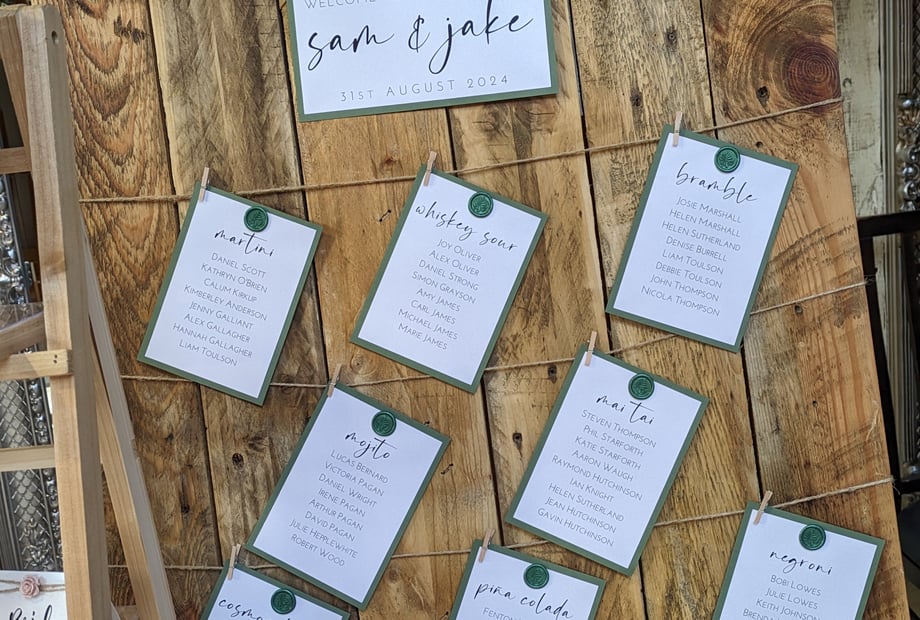 WELCOME
sam & jake
31ST AUGUST 2024
martini
DANIEL SCOTT
KATHRYN O'BRIEN
CALUM KIRKUP
KIMBERLEY ANDERSON
JENNY GALLIANT
ALEX GALLAGHER
HANNAH GALLAGHER
LIAM TOULSON
whiskey sour
JOY OLIVER
ALEX OLIVER
DANIEL STRONG
SIMON GRAYSON
AMY JAMES
CARL JAMES
MICHAEL JAMES
MARIE JAMES
bramble
JOSIE MARSHALL
HELEN MARSHALL
HELEN SUTHERLAND
DENISE BURRELL
LIAM TOULSON
DEBBIE TOULSON
JOHN THOMPSON
NICOLA THOMPSON
mojito
LUCAS BERNARD
VICTORIA PAGAN
DANIEL WRIGHT
IRENE PAGAN
ARTHUR PAGAN
DAVID PAGAN
JULIE HEPPLEWHITE
ROBERT WOOD
mai tai
STEVEN THOMPSON
PHIL STARFORTH
KATIE STARFORTH
AARON WAUGH
RAYMOND HUTCHINSON
IAN KNIGHT
HELEN SUTHERLAND
JEAN HUTCHINSON
GAVIN HUTCHINSON
cosmo
piña colada
FENTON
negroni
BOBI LOWES
JULIE LOWES
KEITH JOHNSON